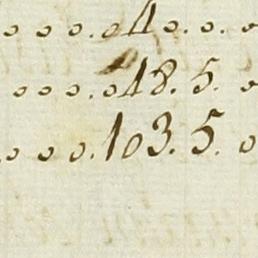 o o o. o 4 o. o. o
o o o. o 48. 5. o
o o o. 103. 5. o